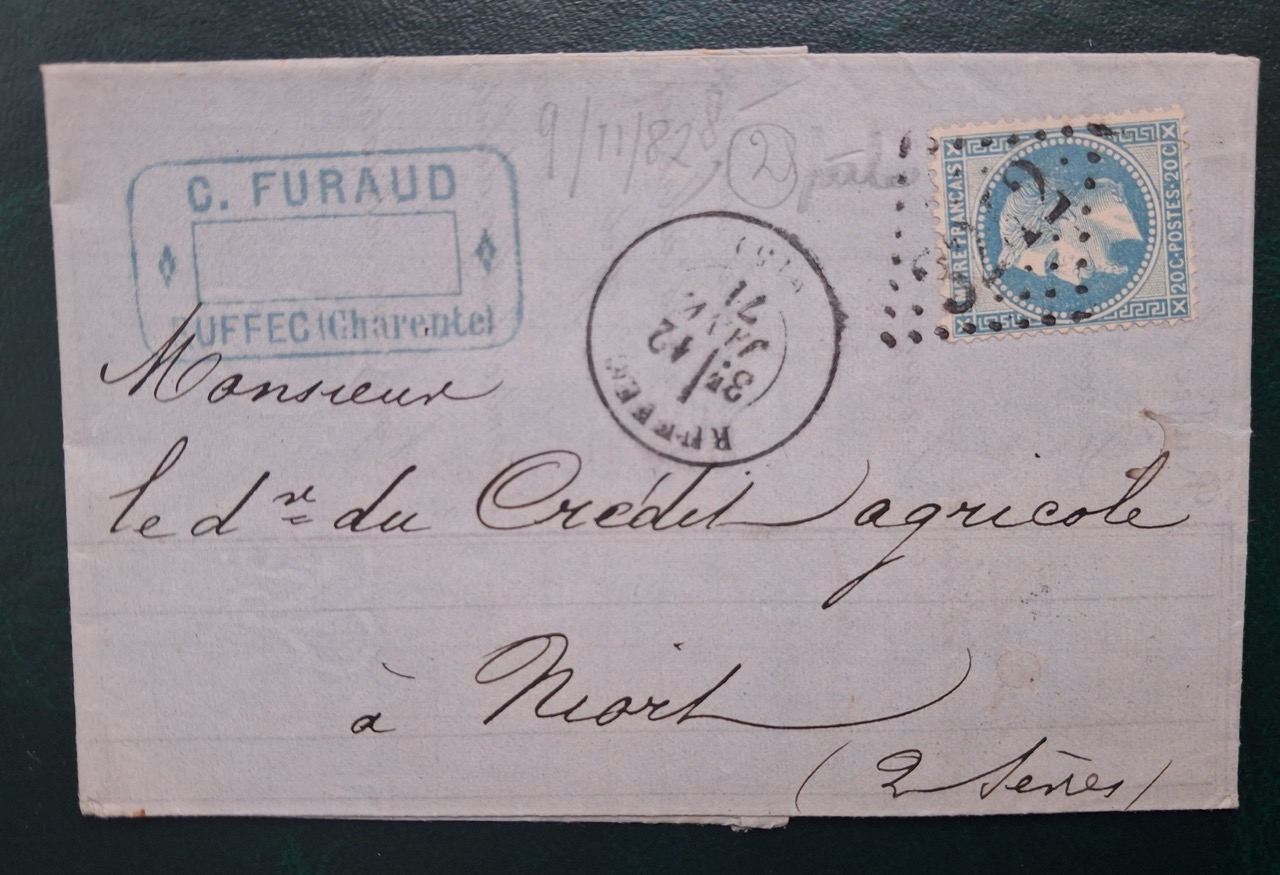 9/11/828
2
C. FURAUD
RUFFEC (Charente)
RUFFEC
3E
12
JANV.
71
(15)
EMPIRE FRANCAIS
20 C-POSTES-20 C
Monsieur
le dr. du Crédit agricole
à Niort
(2 Sèvres)